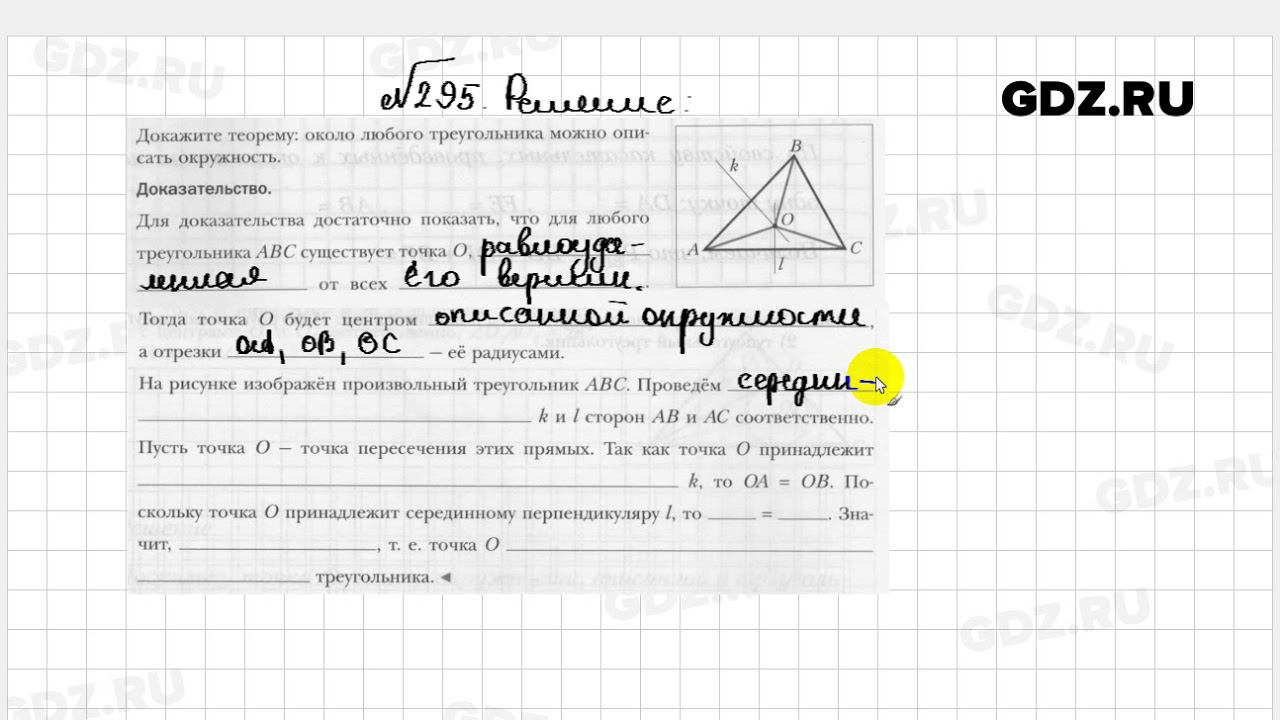 GDZ.RU
GDZ.RU
№295. Решение:
GDZ.RU
Докажите теорему: около любого треугольника можно опи-
сать окружность.
Доказательство.
Для доказательства достаточно показать, что для любого
треугольника ABC существует точка O, равноуда-
ленная от всех его вершин.
Тогда точка O будет центром описанной окружности,
а отрезки OA, OB, OC – её радиусами.
На рисунке изображён произвольный треугольник ABC. Проведём середин-
k и l сторон AB и AC соответственно.
Пусть точка O – точка пересечения этих прямых. Так как точка O принадлежит
k, то OA = OB. По-
скольку точка O принадлежит серединному перпендикуляру l, то ____ = ____. Зна-
чит, ____, т. е. точка O ____
____ треугольника. ◄
B
k
O
A
C
l
GDZ.RU
GDZ.RU
GDZ.RU
GDZ.RU
GDZ.RU
GDZ.RU